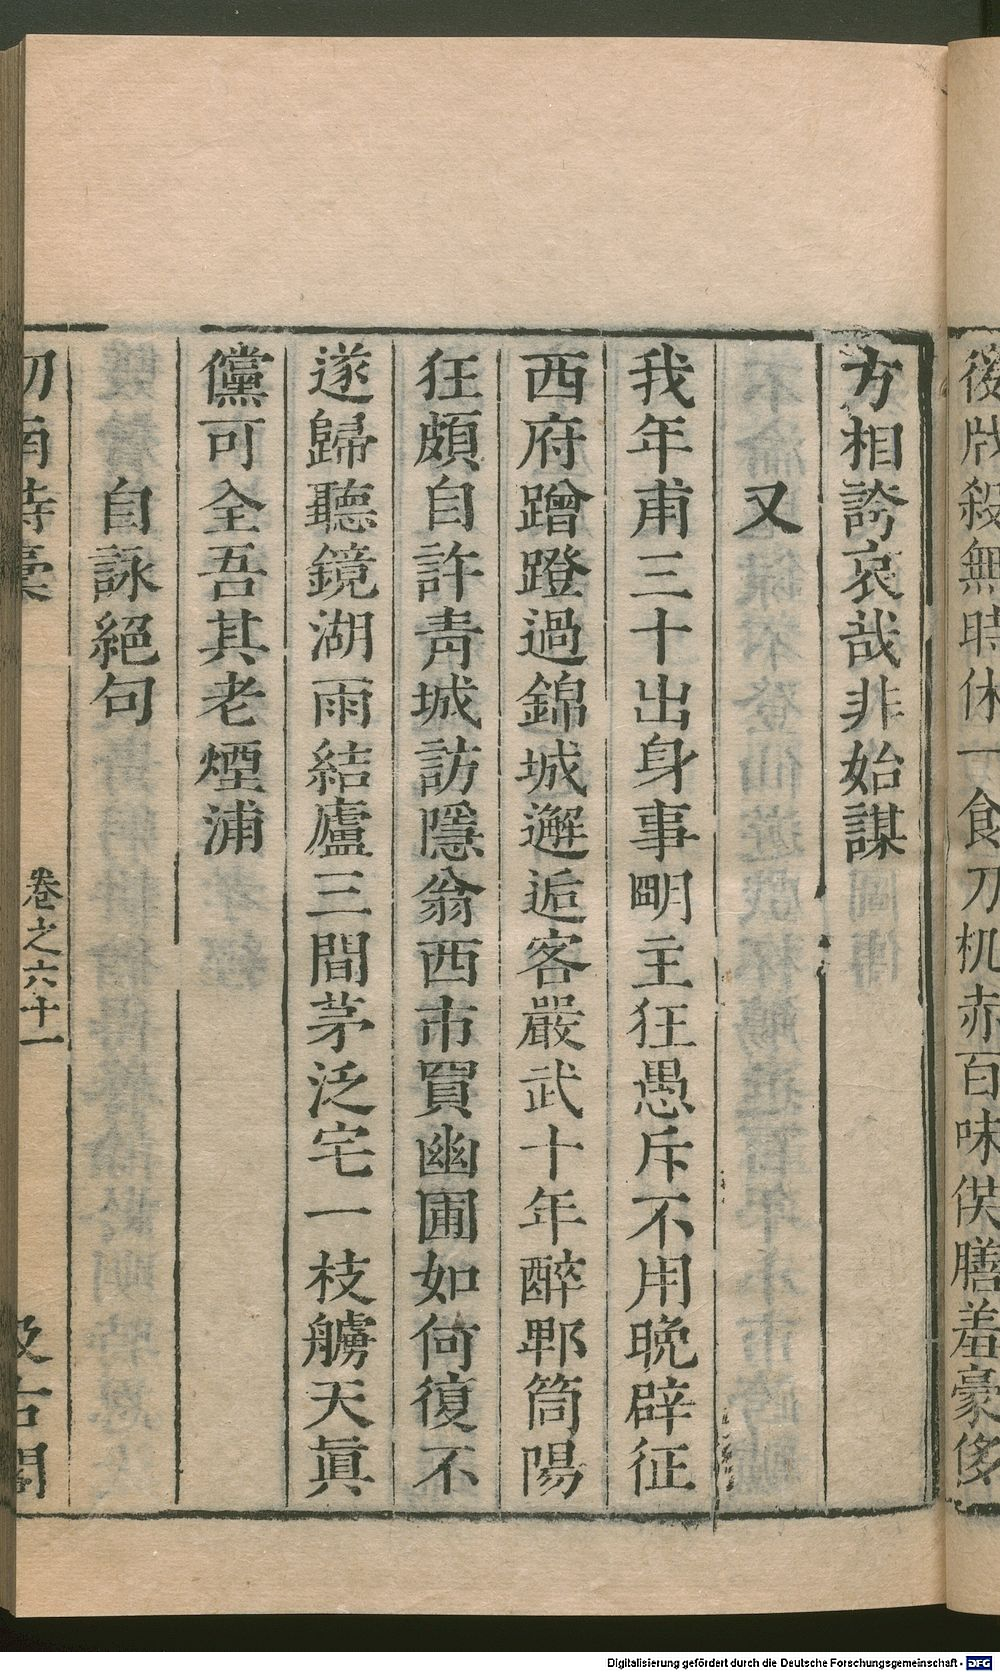 後戕殺無時休一食刀机赤百味供膳羞豪侈
方相誇哀哉非始謀
又
我年甫三十出身事明主狂愚斥不用晚辟征
西府蹭蹬過錦城邂逅客嚴武十年醉郫筒陽
狂頗自許靑城訪隱翁西市買幽圃如何復不
遂歸聽鏡湖雨結廬三間茅泛宅一枝艣天眞
儻可全吾其老煙浦
自詠絕句
劒南詩稾
卷之六十一
汲古閣
Digitalisierung gefördert durch die Deutsche Forschungsgemeinschaft - DFG